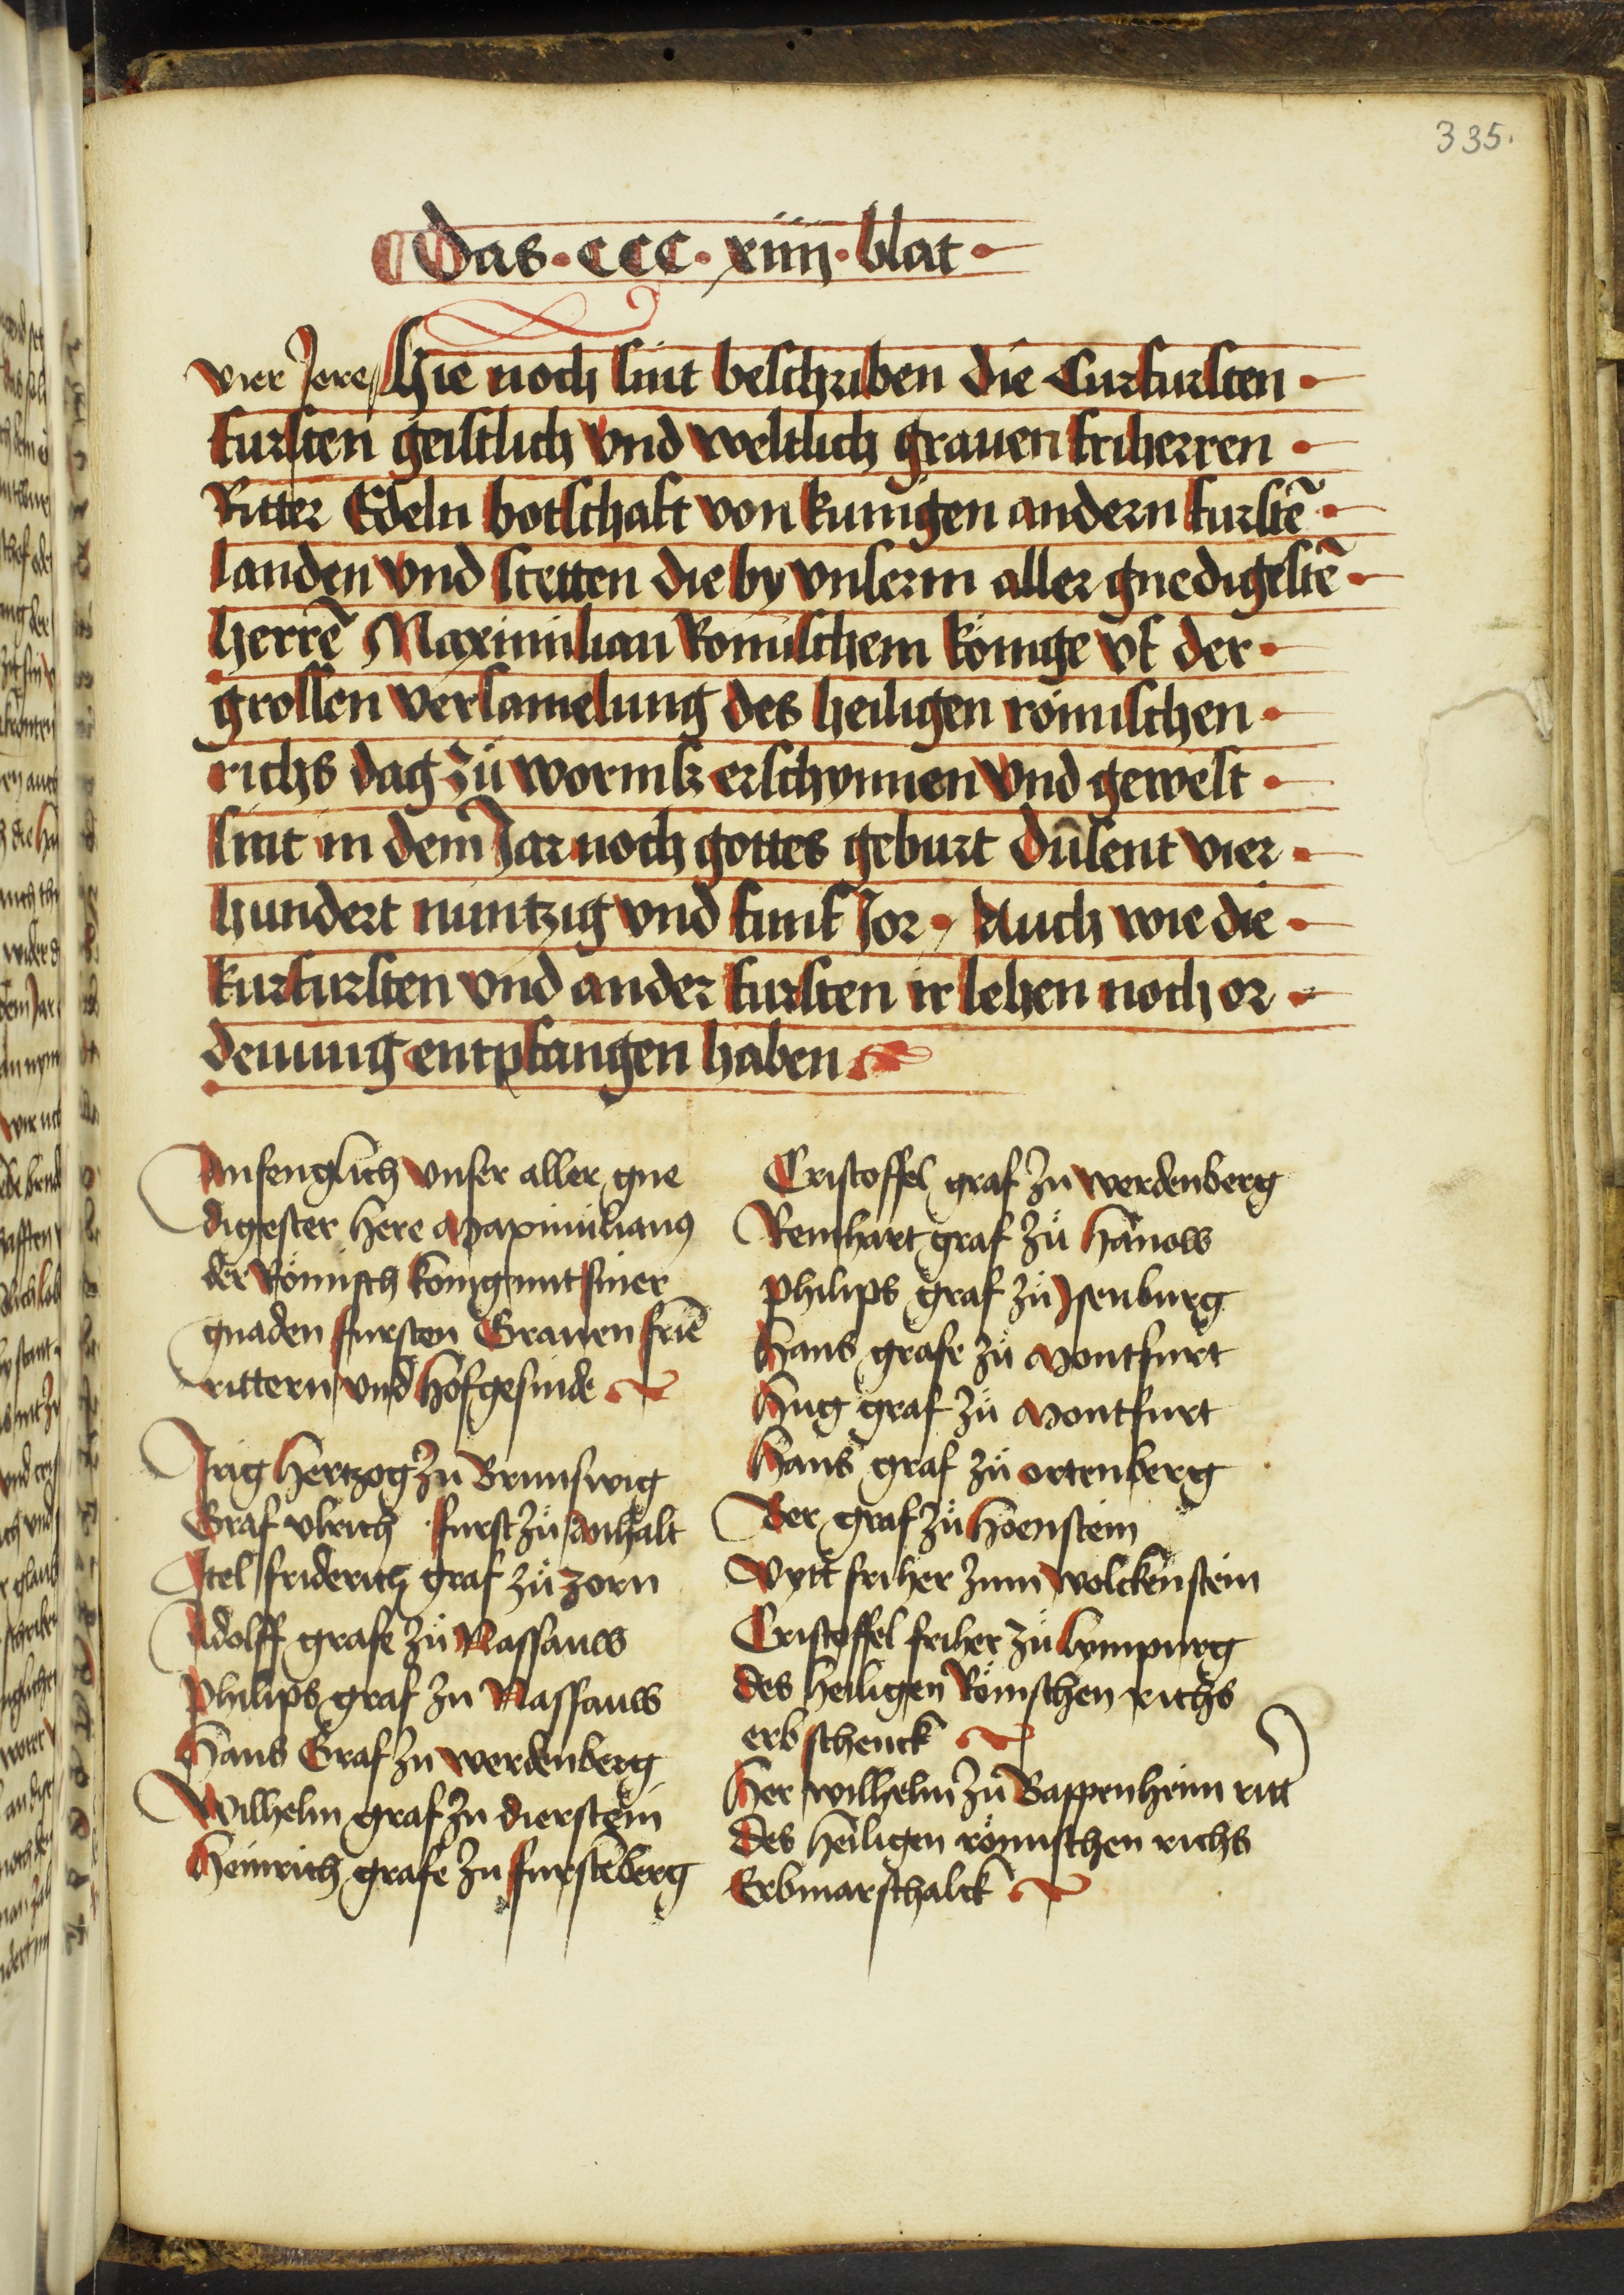 335.
Das · CCC · xiiii · blat
vier Jore Hie noch sint beschriben die Curfursten
fursten geistlich vnd weltlich grauen friherren
Ritter Edeln botschaft von kunigen andern furstē
landen vnd stetten die by vnserm aller gnedigestē
herrē Maximilian Romischem könige vf der
grossen versamelung des heiligen römischen
richs dag zů wormß erschynnen vnd gewest
sint in dem Jar noch gottes geburt dûsent vier
hundert nüntzig vnd funf Jor · Auch wie die
kurfursten vnd ander fursten ir lehen noch or
denung entpfangen haben
Anfenglich vnser aller gne
digester here Maximilianus
der Römisch konig mit siner
gnaden fursten Grauen friē
rittern vnd hofgesinde
Jrig Hertzog zu Brunswig
Graf vlrich furst zů Anhalt
Jtel friderich graf zů zorn
Adolff grafe zů Nassauw
philips graf zu Nassauw
Hans Graf zu werdenberg
Wilhelm graf zu dierstein
Heinrich grafe zu furstēberg
Cristoffel graf zu werdenberg
Reinhart graf zů hanow
philips graf zů Jsenburg
Hans grafe zů Montfurt
Hug graf zů Montfurt
Hans graf zů ortenberg
Der graf zů Hoenstein
Vytt friher zum wolckenstein
Cristoffel friher zů lympurg
des heiligen Römschen richs
erb schenck
Her wilhelm zů Bappenheim ritt
des heiligen römischen richs
Erbmarschalck